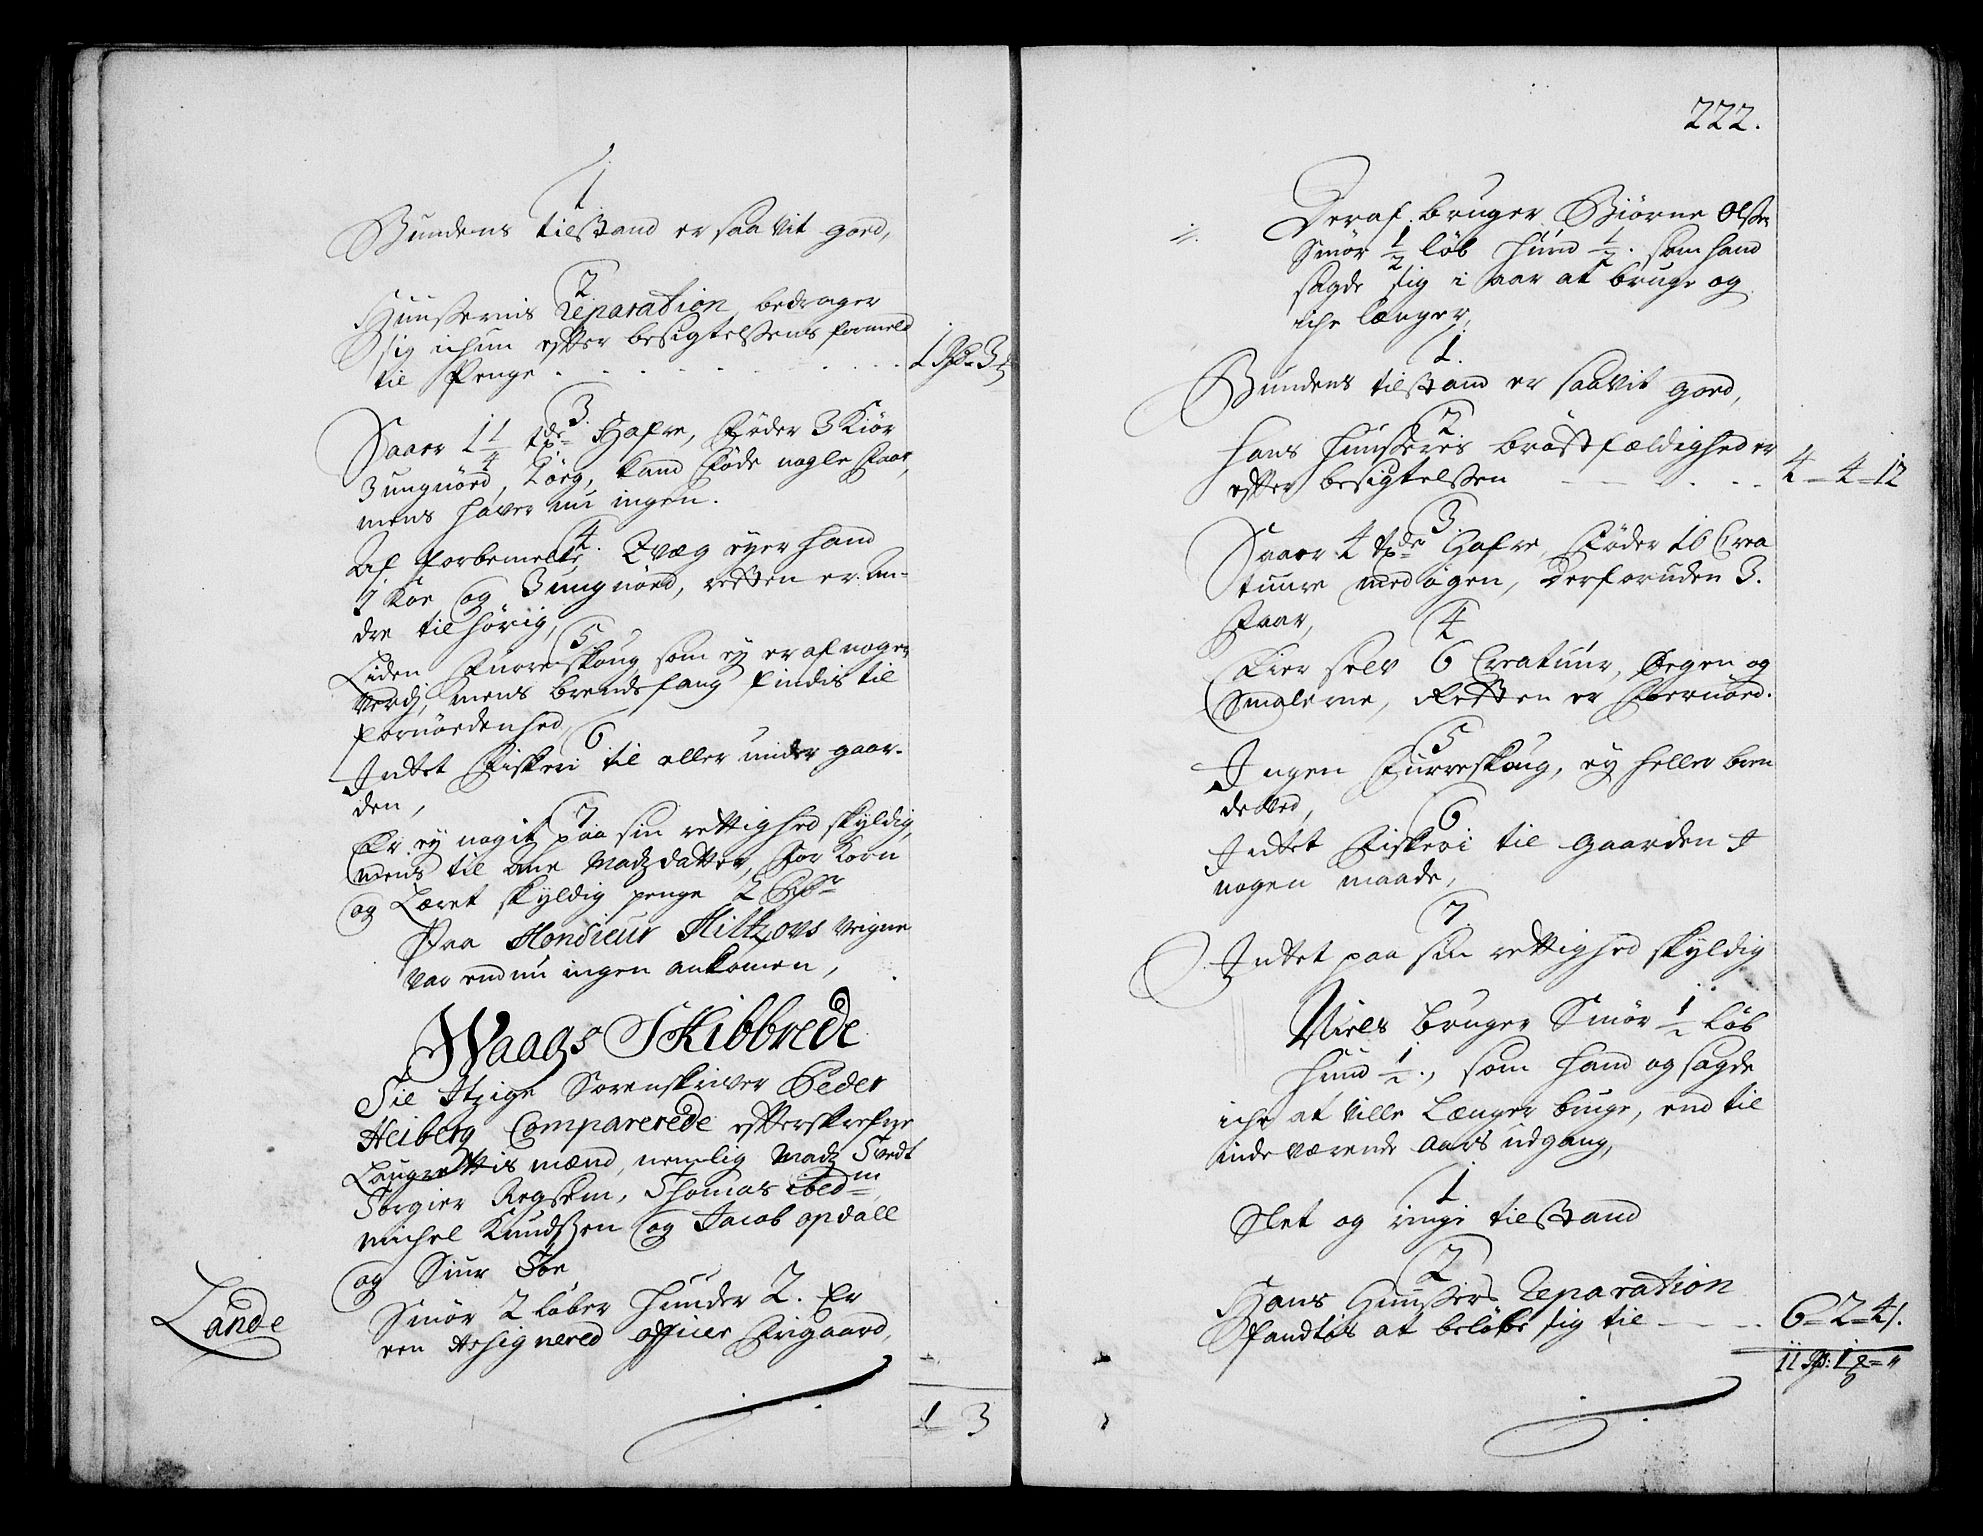 1
Bundens tilstand er saa vit goed,
2
Huussernis Reparation bedrager
sig efter besigtelssens formeld
til Penge . . . . . . . . 1 Rdr 3
3.
Saaer 1 1/4 tdr Hafre, Føder 3 Kiør
3 ungnöed, 1 ög, kand Føde nogle Faar,
mens haver nu ingen.
4.
Af forbemelte Qvæg eyer hand
1 Koe og 3 ungnöed, resten er an-
dre tilhörig,
5
Liden Fuoreskoug som ey er af nogen
Verdj, mens brendefang findis til
fornöedenhed
6
Indtet Fiskeri til eller under gaar-
den,
7
Er ey nogit paa sin rettighed skyldig,
mens til ane Madz datter, for Korn
og Læret skyldig penge 2 Rdr
Paa Monsieur Hiltzovs veigne
var end nu ingen ankomen,
Waags Skibbrede
Til Itzige Sorenskriver Peder
Heiberg Comparerede efterskrefne
Laugrettis mænd, nemlig Madz Tvedt
Torgier Regsem, Thomas ibedm
Michel Knudssen og Jacob opdall
og Siur Töe
Lande
Smör 2 löber Hunder 2. Er
een Assignered officer Frigaard,
1 3
222.
Deraf bruger Biörne Olsen
Smör 1/2 löb Huud 1/2. som hand
sagde sig i aar at bruge og
iche længer,
1.
Bundens tilstand er saavit goed,
2
Hans Huusseres bröstfældighed er
efter besigtelssen - - . . . 4 - 4 - 12
3.
Saaer 4 tdr Hafre, Føder 10 Crea
tuure med ögen, Derforuden 3.
Faar,
4
Eier selv 6 Creatuur, Øegen og
Smalerne, Resten er Foernöed.
5
Ingen Furreskoug, ey heller bren
deved,
6
Indtet Fiskeri til Gaarden I
nogen maade,
7.
Indtet paa sin rettighed skyldig
Niels bruger Smör 1/2 löb
Huud 1/2., som hand og sagde
iche at ville Længer bruge, end til
indeværende Aars udgang,
1
Slet og ringe tilstand
2
Hans Huussers Reparation
fandtes at belöbe sig til - - - . . 6 - 2 - 4 s.
11 Rdr: 1 - "